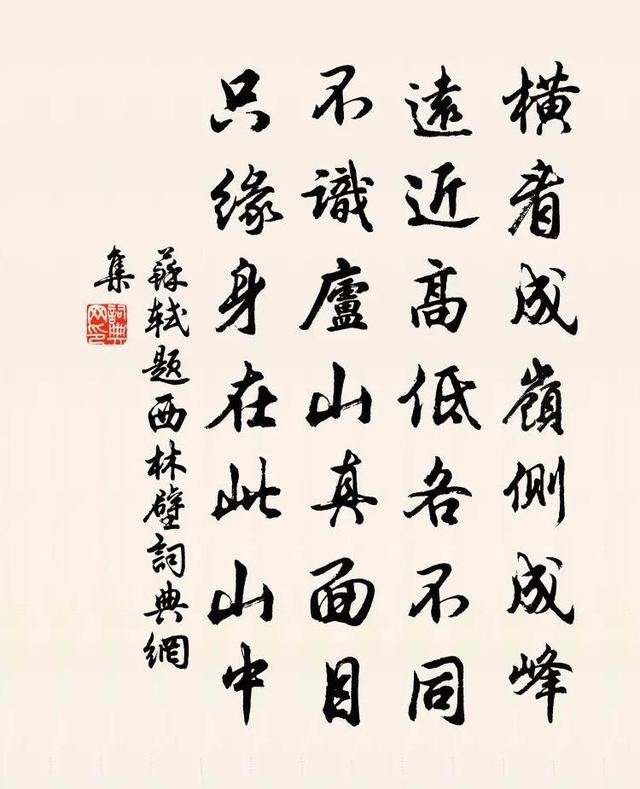 橫看成嶺側成峰
遠近高低各不同
不識廬山真面目
只緣身在此山中
蘇軾題西林壁詞典網
集
詞典
网印